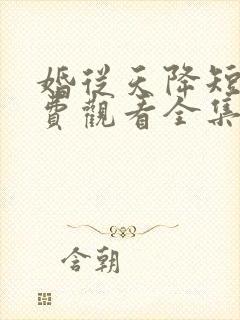 婚從天降短
費觀看全集
含朝